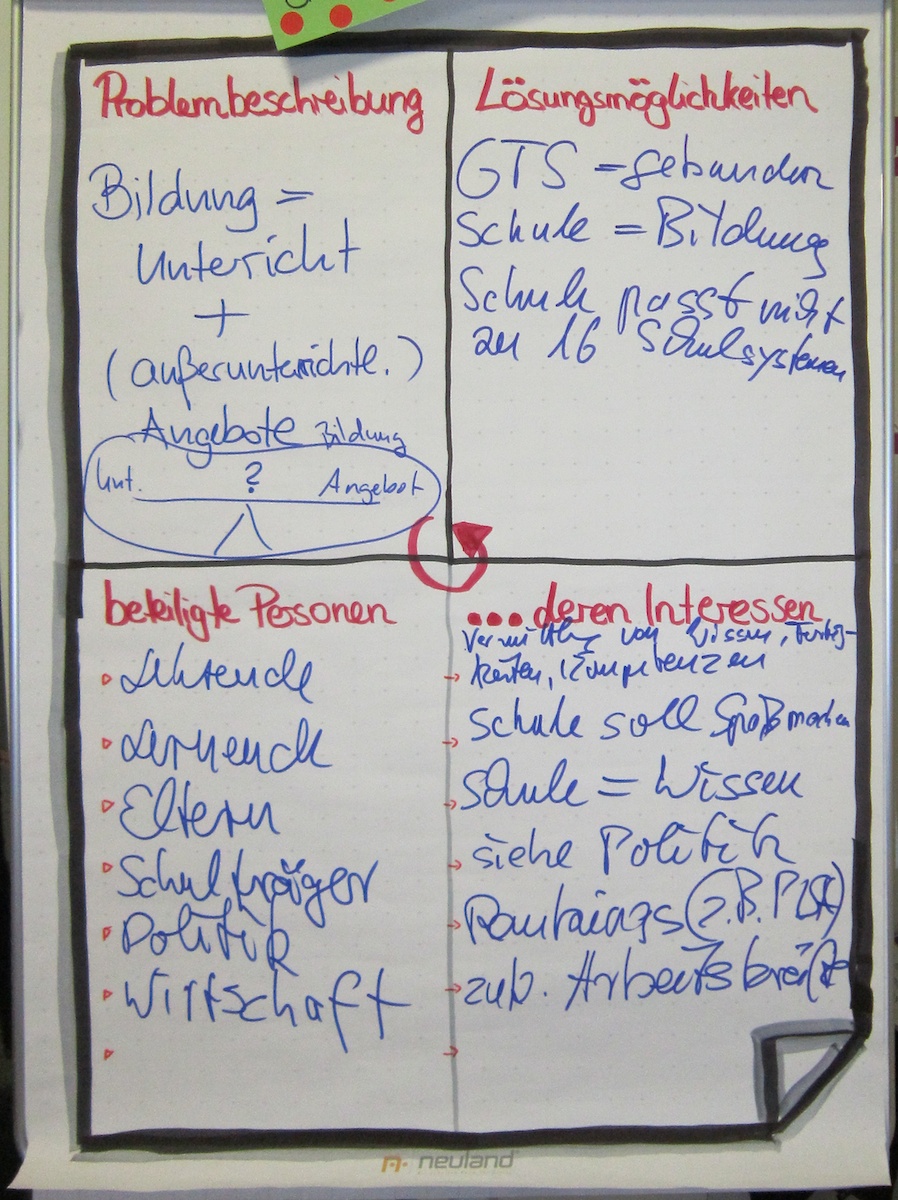 Problembeschreibung
Bildung =
Unterricht
+
(außerunterrichtl.)
Angebote Bildung
Unt. ? Angebot
Lösungsmöglichkeiten
GTS = gebunden
Schule = Bildung
Schule passt nicht
zu 16 Schulsystemen
beteiligte Personen
Lehrende
Lernende
Eltern
Schulträger
Politik
Wirtschaft
... deren Interessen
Vermittlung von Wissen, Fertig-
keiten, Kompetenzen
Schule soll Spaß machen
Schule = Wissen
siehe Politik
(z.B. PISA)
zuk. Arbeitskräfte
neuland